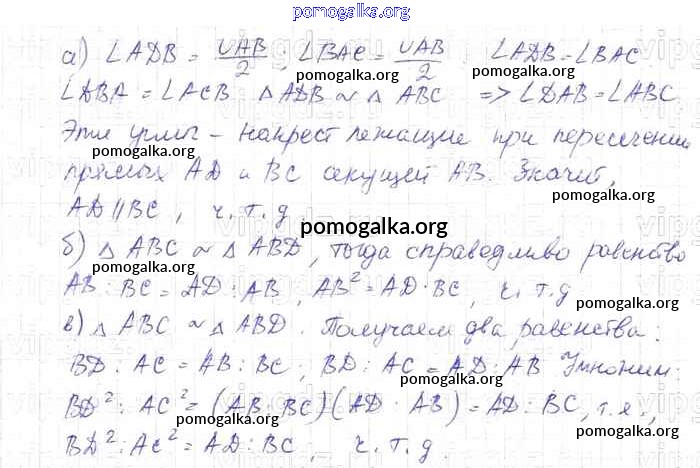 pomogalka.org
а) ∠ADB = ∪AB/2 ; ∠BAC = ∪AB/2 . ∠ADB = ∠BAC
pomogalka.org pomogalka.org
∠DBA = ∠ACB △ ADB ~ △ ABC => ∠DAB = ∠ABC
pomogalka.org
Эти углы - накрест лежащие при пересечении
pomogalka.org
прямых AD и BC секущей AB. Значит,
pomogalka.org
AD || BC, ч. т. д
pomogalka.org
б) △ ABC ~ △ ABD, тогда справедливо равенство
pomogalka.org
AB : BC = AD : AB, AB² = AD · BC, ч. т. д
pomogalka.org pomogalka.org
в) △ ABC ~ △ ABD. Получаем два равенства:
BD : AC = AB : BC ; BD : AC = AD : AB Умножим:
pomogalka.org
BD² : AC² = (AB : BC)(AD · AB) = AD : BC, т. е.,
pomogalka.org pomogalka.org
BD² : AC² = AD : BC, ч. т. д.